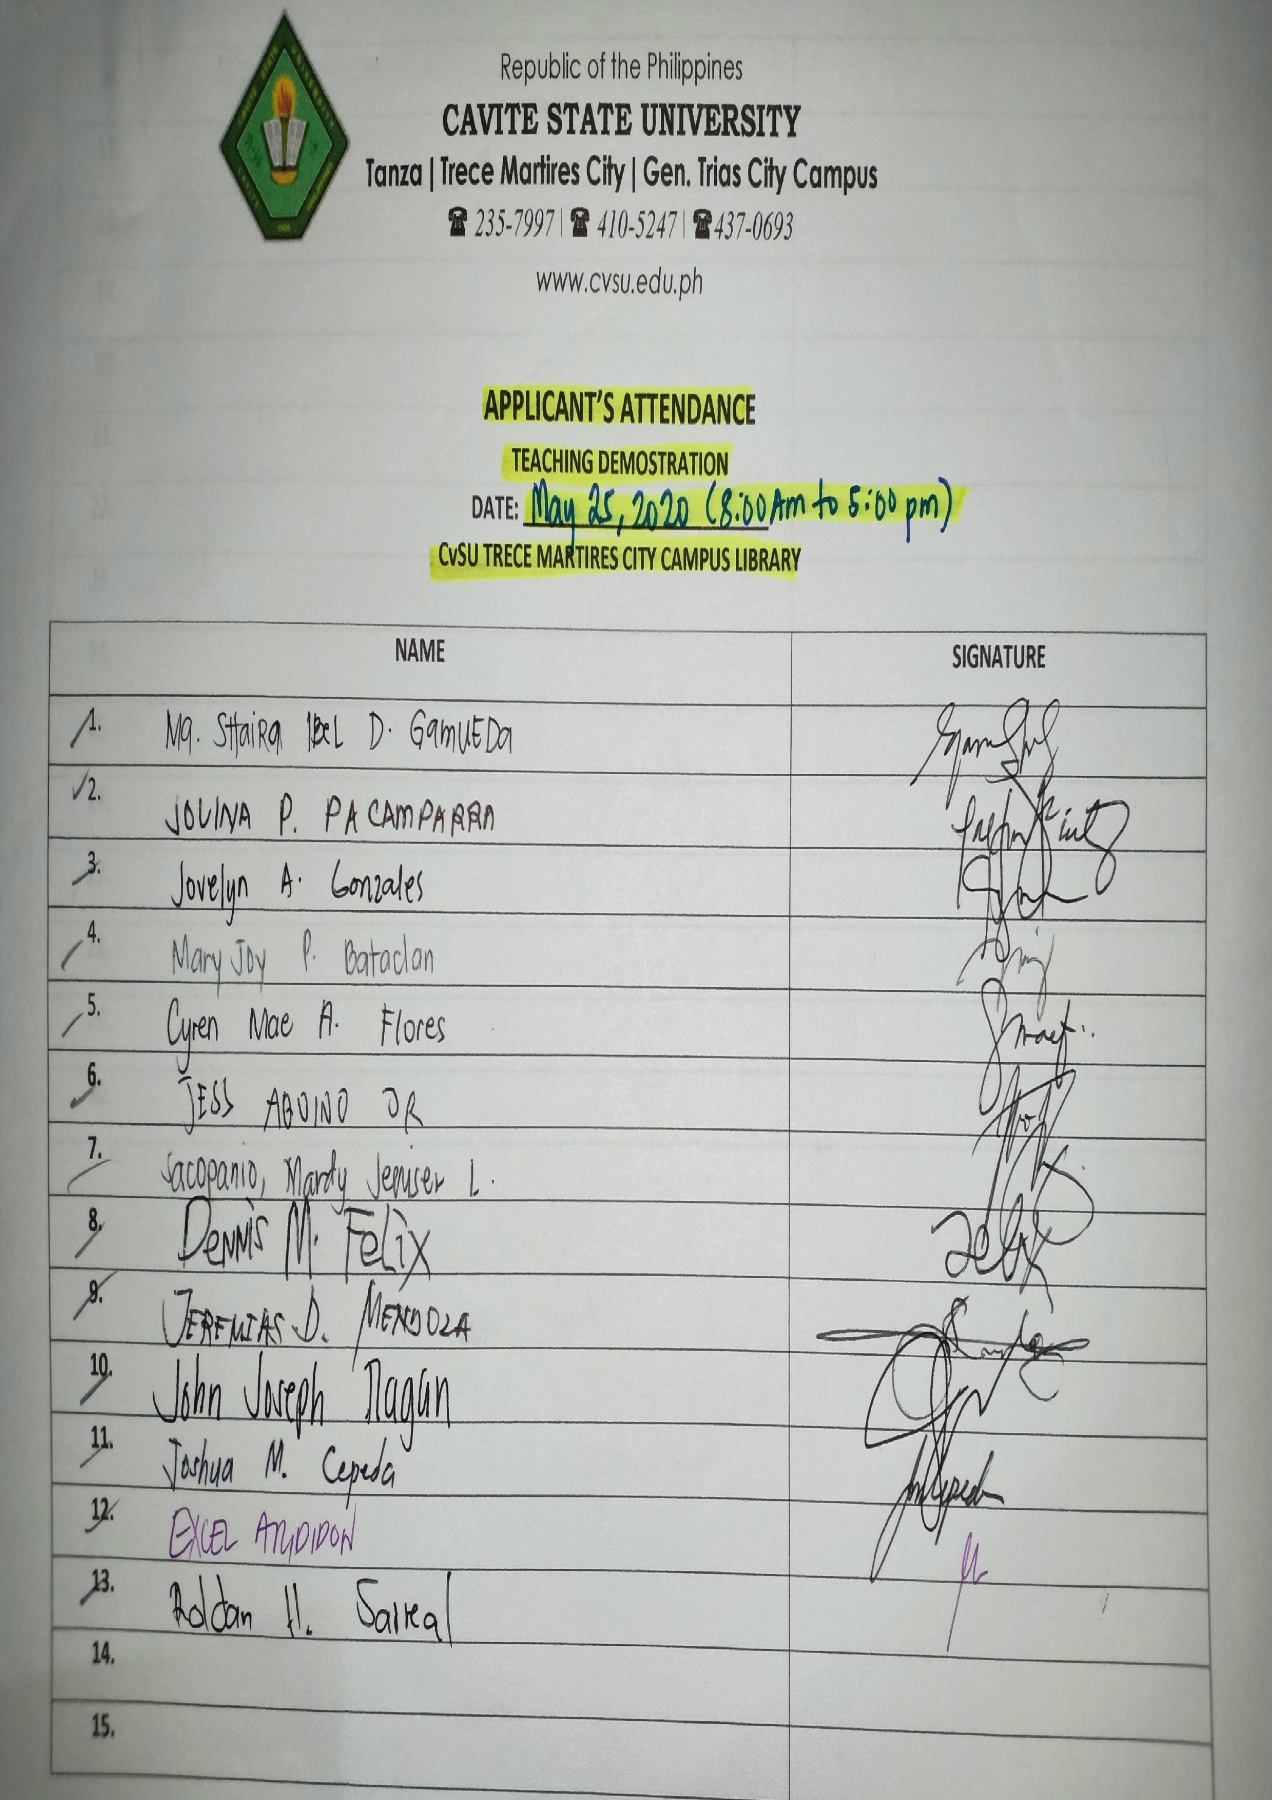 Republic of the Philippines
CAVITE STATE UNIVERSITY
Tanza | Trece Martires City | Gen. Trias City Campus
☎ 235-7997 | ☎ 410-5247 | ☎ 437-0693
www.cvsu.edu.ph
APPLICANT'S ATTENDANCE
TEACHING DEMOSTRATION
DATE: May 25, 2020 (8:00 Am to 5:00 pm)
CvSU TRECE MARTIRES CITY CAMPUS LIBRARY
NAME SIGNATURE
1. Ma. SHaiRa IBeL D. GamUEDa
2. JOLINA P. PACAMPARRA
3. Jovelyn A. Gonzales
4. Mary Joy P. Bataclan
5. Cyren Mae A. Flores
6. JESS AQUINO JR
7. Sacopanio, Mardy Jeniser L.
8. DeNNiS M. FeLix
9. JEREMIAS D. MENDOZA
10. John Joseph Ilagan
11. Joshua M. Cepeda
12. EXCEL
13. Roldan H. Sarreal
14.
15.